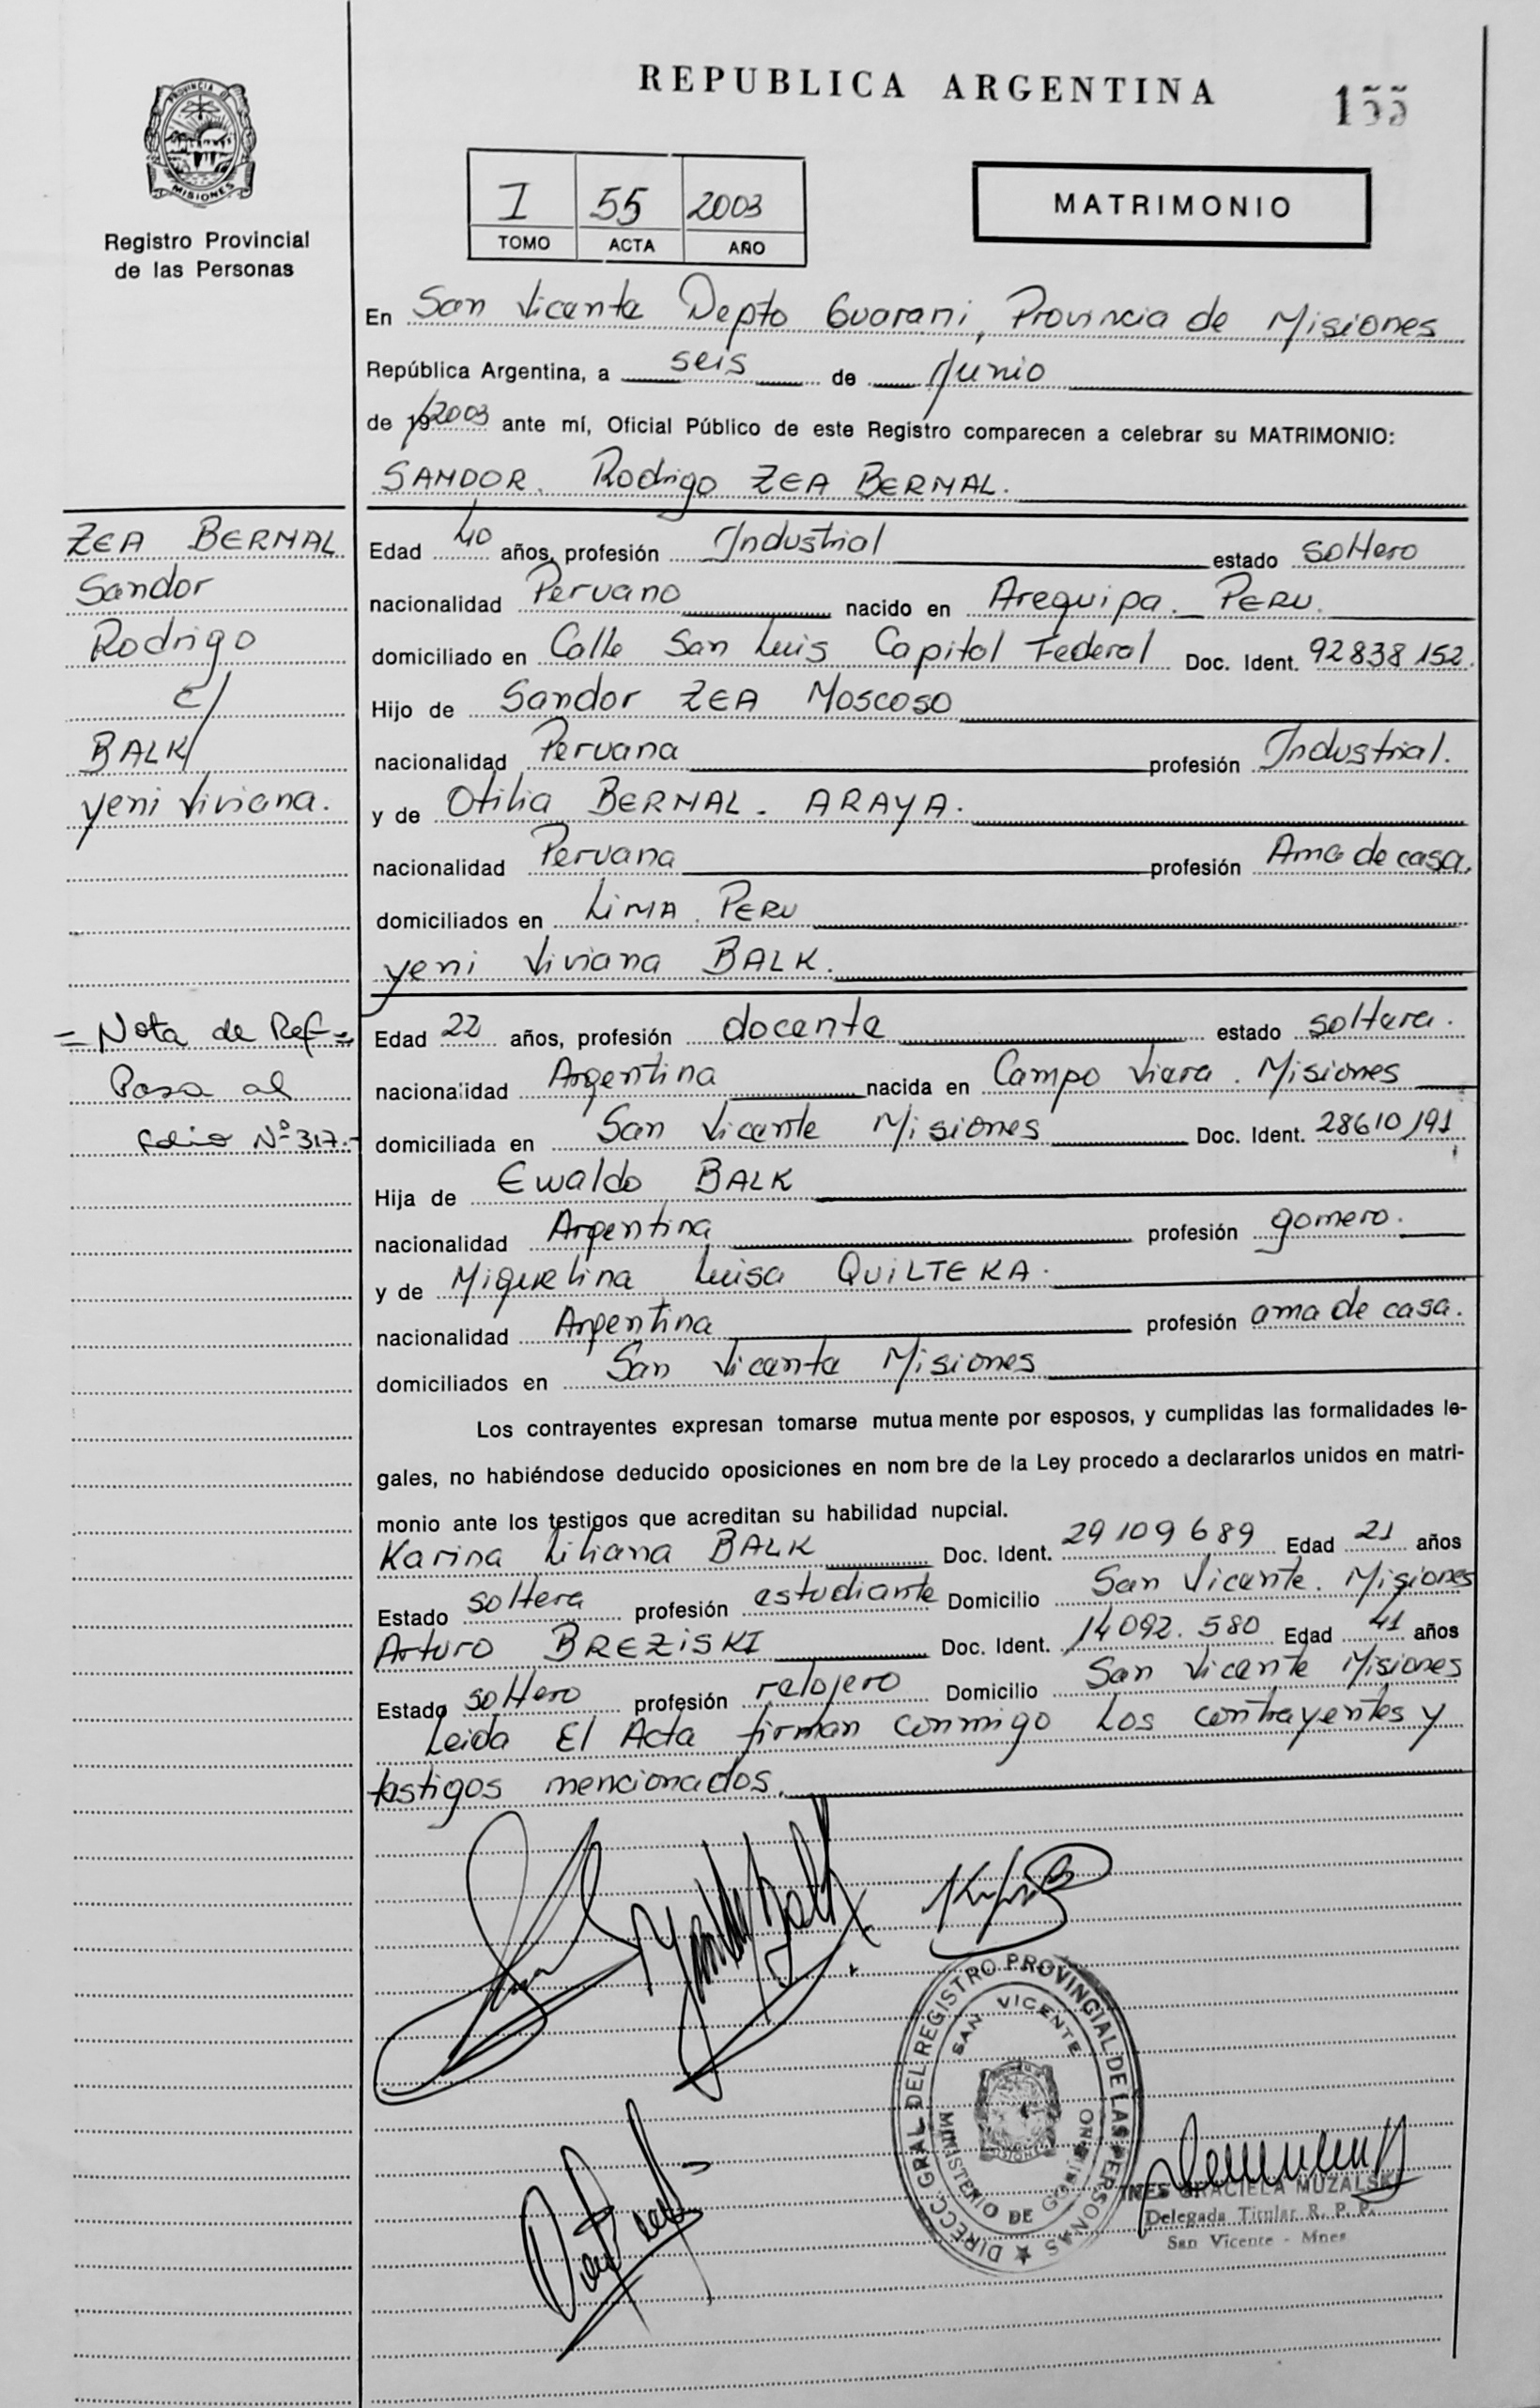 REPUBLICA ARGENTINA
155
PROVINCIA DE
MISIONES
Registro Provincial
de las Personas
I 55 2003
TOMO ACTA AÑO
MATRIMONIO
En San Vicente Depto Guarani, Provincia de Misiones
República Argentina, a seis de Junio
de 19/2003 ante mí, Oficial Público de este Registro comparecen a celebrar su MATRIMONIO:
SANDOR. Rodrigo ZEA BERNAL.
ZEA BERNAL
Sandor
Rodrigo
c/
BALK
Yeni Viviana.
Edad 40 años, profesión Industrial estado soltero
nacionalidad Peruano nacido en Arequipa. PERU.
domiciliado en Calle San Luis Capital Federal Doc. Ident. 92838152.
Hijo de Sandor ZEA MOSCOSO
nacionalidad Peruana profesión Industrial.
y de Otilia BERNAL - ARAYA.
nacionalidad Peruana profesión Ama de casa.
domiciliados en LIMA. PERU
Yeni Viviana BALK.
= Nota de Ref =
Pasa al
folio Nº 317.-
Edad 22 años, profesión docente estado soltera.
nacionalidad Argentina nacida en Campo Viera. Misiones
domiciliada en San Vicente Misiones Doc. Ident. 28610191
Hija de Ewaldo BALK
nacionalidad Argentina profesión gomero.
y de Miguelina Luisa QUILTEKA.
nacionalidad Argentina profesión ama de casa.
domiciliados en San Vicente Misiones
Los contrayentes expresan tomarse mutua mente por esposos, y cumplidas las formalidades le-
gales, no habiéndose deducido oposiciones en nom bre de la Ley procedo a declararlos unidos en matri-
monio ante los testigos que acreditan su habilidad nupcial.
Karina Liliana BALK Doc. Ident. 29109689 Edad 21 años
Estado soltera profesión estudiante Domicilio San Vicente. Misiones
Arturo BREZISKI Doc. Ident. 14092.580 Edad 41 años
Estado soltero profesión relojero Domicilio San Vicente Misiones
Leida El Acta firman conmigo Los contrayentes y
testigos mencionados.
DIRECC. GRAL DEL REGISTRO PROVINCIAL DE LAS PERSONAS
SAN VICENTE
MINISTERIO DE GOBIERNO
INES GRACIELA MUZALSKI
Delegada Titular R. P. P.
San Vicente - Mnes